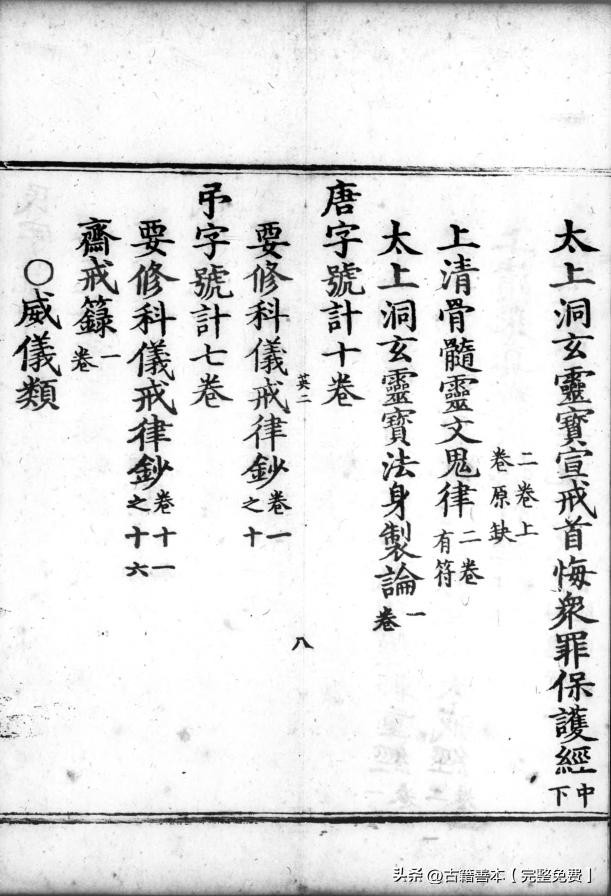 太上洞玄靈寶宣戒首悔衆罪保護經中下
二卷上卷原缺
上清骨髓靈文鬼律二卷有符
太上洞玄靈寶法身製論一卷
唐字號計十卷
英二 八
要修科儀戒律鈔卷一之十
弔字號計七卷
要修科儀戒律鈔卷十一之十六
齋戒籙一卷
○威儀類
头条 @古籍善本【完整免费】